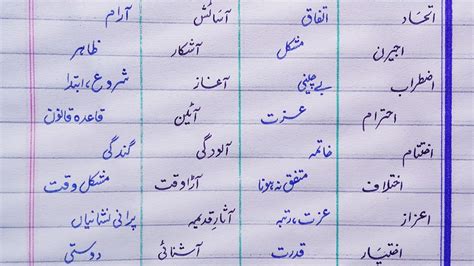 اتحاد اتفاق آسائش آرام
اجیرن مشکل آشکار ظاہر
اضطراب بے چینی آغاز شروع، ابتدا
احترام عزت آئین قاعدہ قانون
اختتام خاتمہ آلودگی گندگی
اختلاف متفق نہ ہونا آڑا وقت مشکل وقت
اعزاز عزت، رتبہ آثارِ قدیمہ پرانی نشانیاں
اختیار قدرت آشنائی دوستی